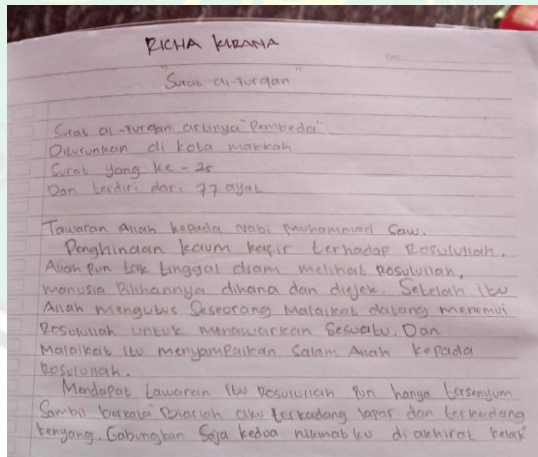 RICHA KIRANA
"Surat al-furqan"
Surat al-furqan artinya "Pembeda"
Diturunkan di kota makkah
Surat yang ke-25
Dan terdiri dari 77 ayat
Tawaran Allah kepada Nabi Muhammad Saw.
Penghinaan kaum kafir terhadap Rosulullah.
Allah pun tak tinggal diam melihat Rosulullah,
manusia Pilihannya dihana dan diejek. Setelah itu
Allah mengutus Seseorang Malaikat datang menemui
Rosulullah untuk menawarkan Sesuatu. Dan
Malaikat itu menyampaikan Salam Allah kepada
Rosulullah.
Mendapat tawaran itu Rosulullah pun hanya tersenyum
Sambil berkata "Biarlah aku terkadang lapar dan terkadang
kenyang. Gabungkan Saja kedua nikmat ku di akhirat kelak"